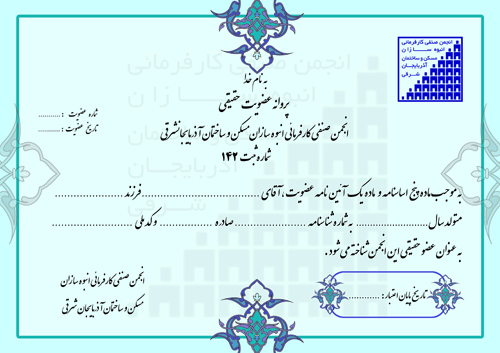 انجمن صنفی کارفرمانی
انبوه سازان
مسکن و ساختمان
آذربایجان
شرقی
به نام خدا
پروانه عضویت حقیقی
انجمن صنفی کارفرمائی انبوه سازان مسکن و ساختمان آذربایجانشرقی
شماره ثبت ۱۴۲
شماره عضویت : ............
تاریخ عضویت : ............
به موجب ماده پنج اساسنامه و ماده یک آئین نامه عضویت، آقای ........................ فرزند ........................
متولد سال ........................ به شماره شناسنامه ........................ صادره ........................ و کد ملی ........................
به عنوان عضو حقیقی این انجمن شناخته می شود .
انجمن صنفی کارفرمائی انبوه سازان
مسکن و ساختمان آذربایجان شرقی
تاریخ پایان اعتبار : ............